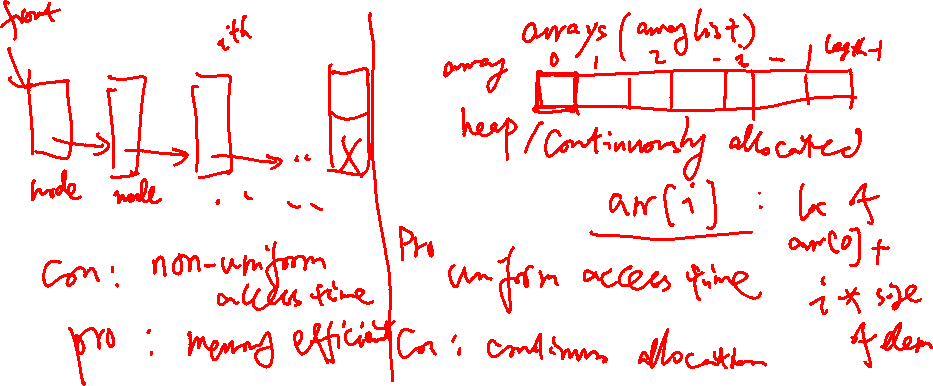 front
ith
node node
con: non-uniform
access time
pro: memory efficient
arrays (arraylist)
array 0 1 2 - i - length-1
heap / Continuously allocated
arr[i] : loc of
arr[0] +
i * size
of elem
Pro
uniform access time
Con: continuous allocation